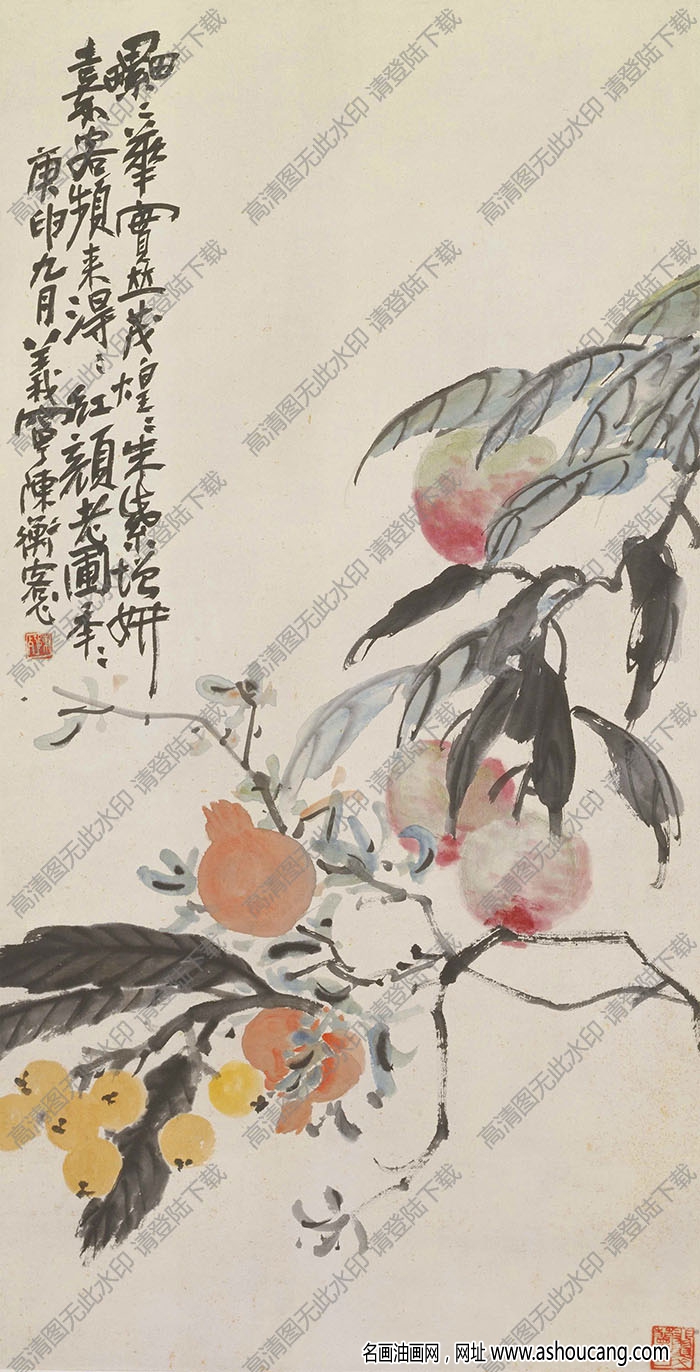 纍〻華實竝茂煌〻朱紫增妍
嘉客頻来淂〻紅顏老圃年〻
庚申九月義寧陳衡恪
高清图无此水印 请登陆下载
名画油画网，网址 www.ashoucang.com